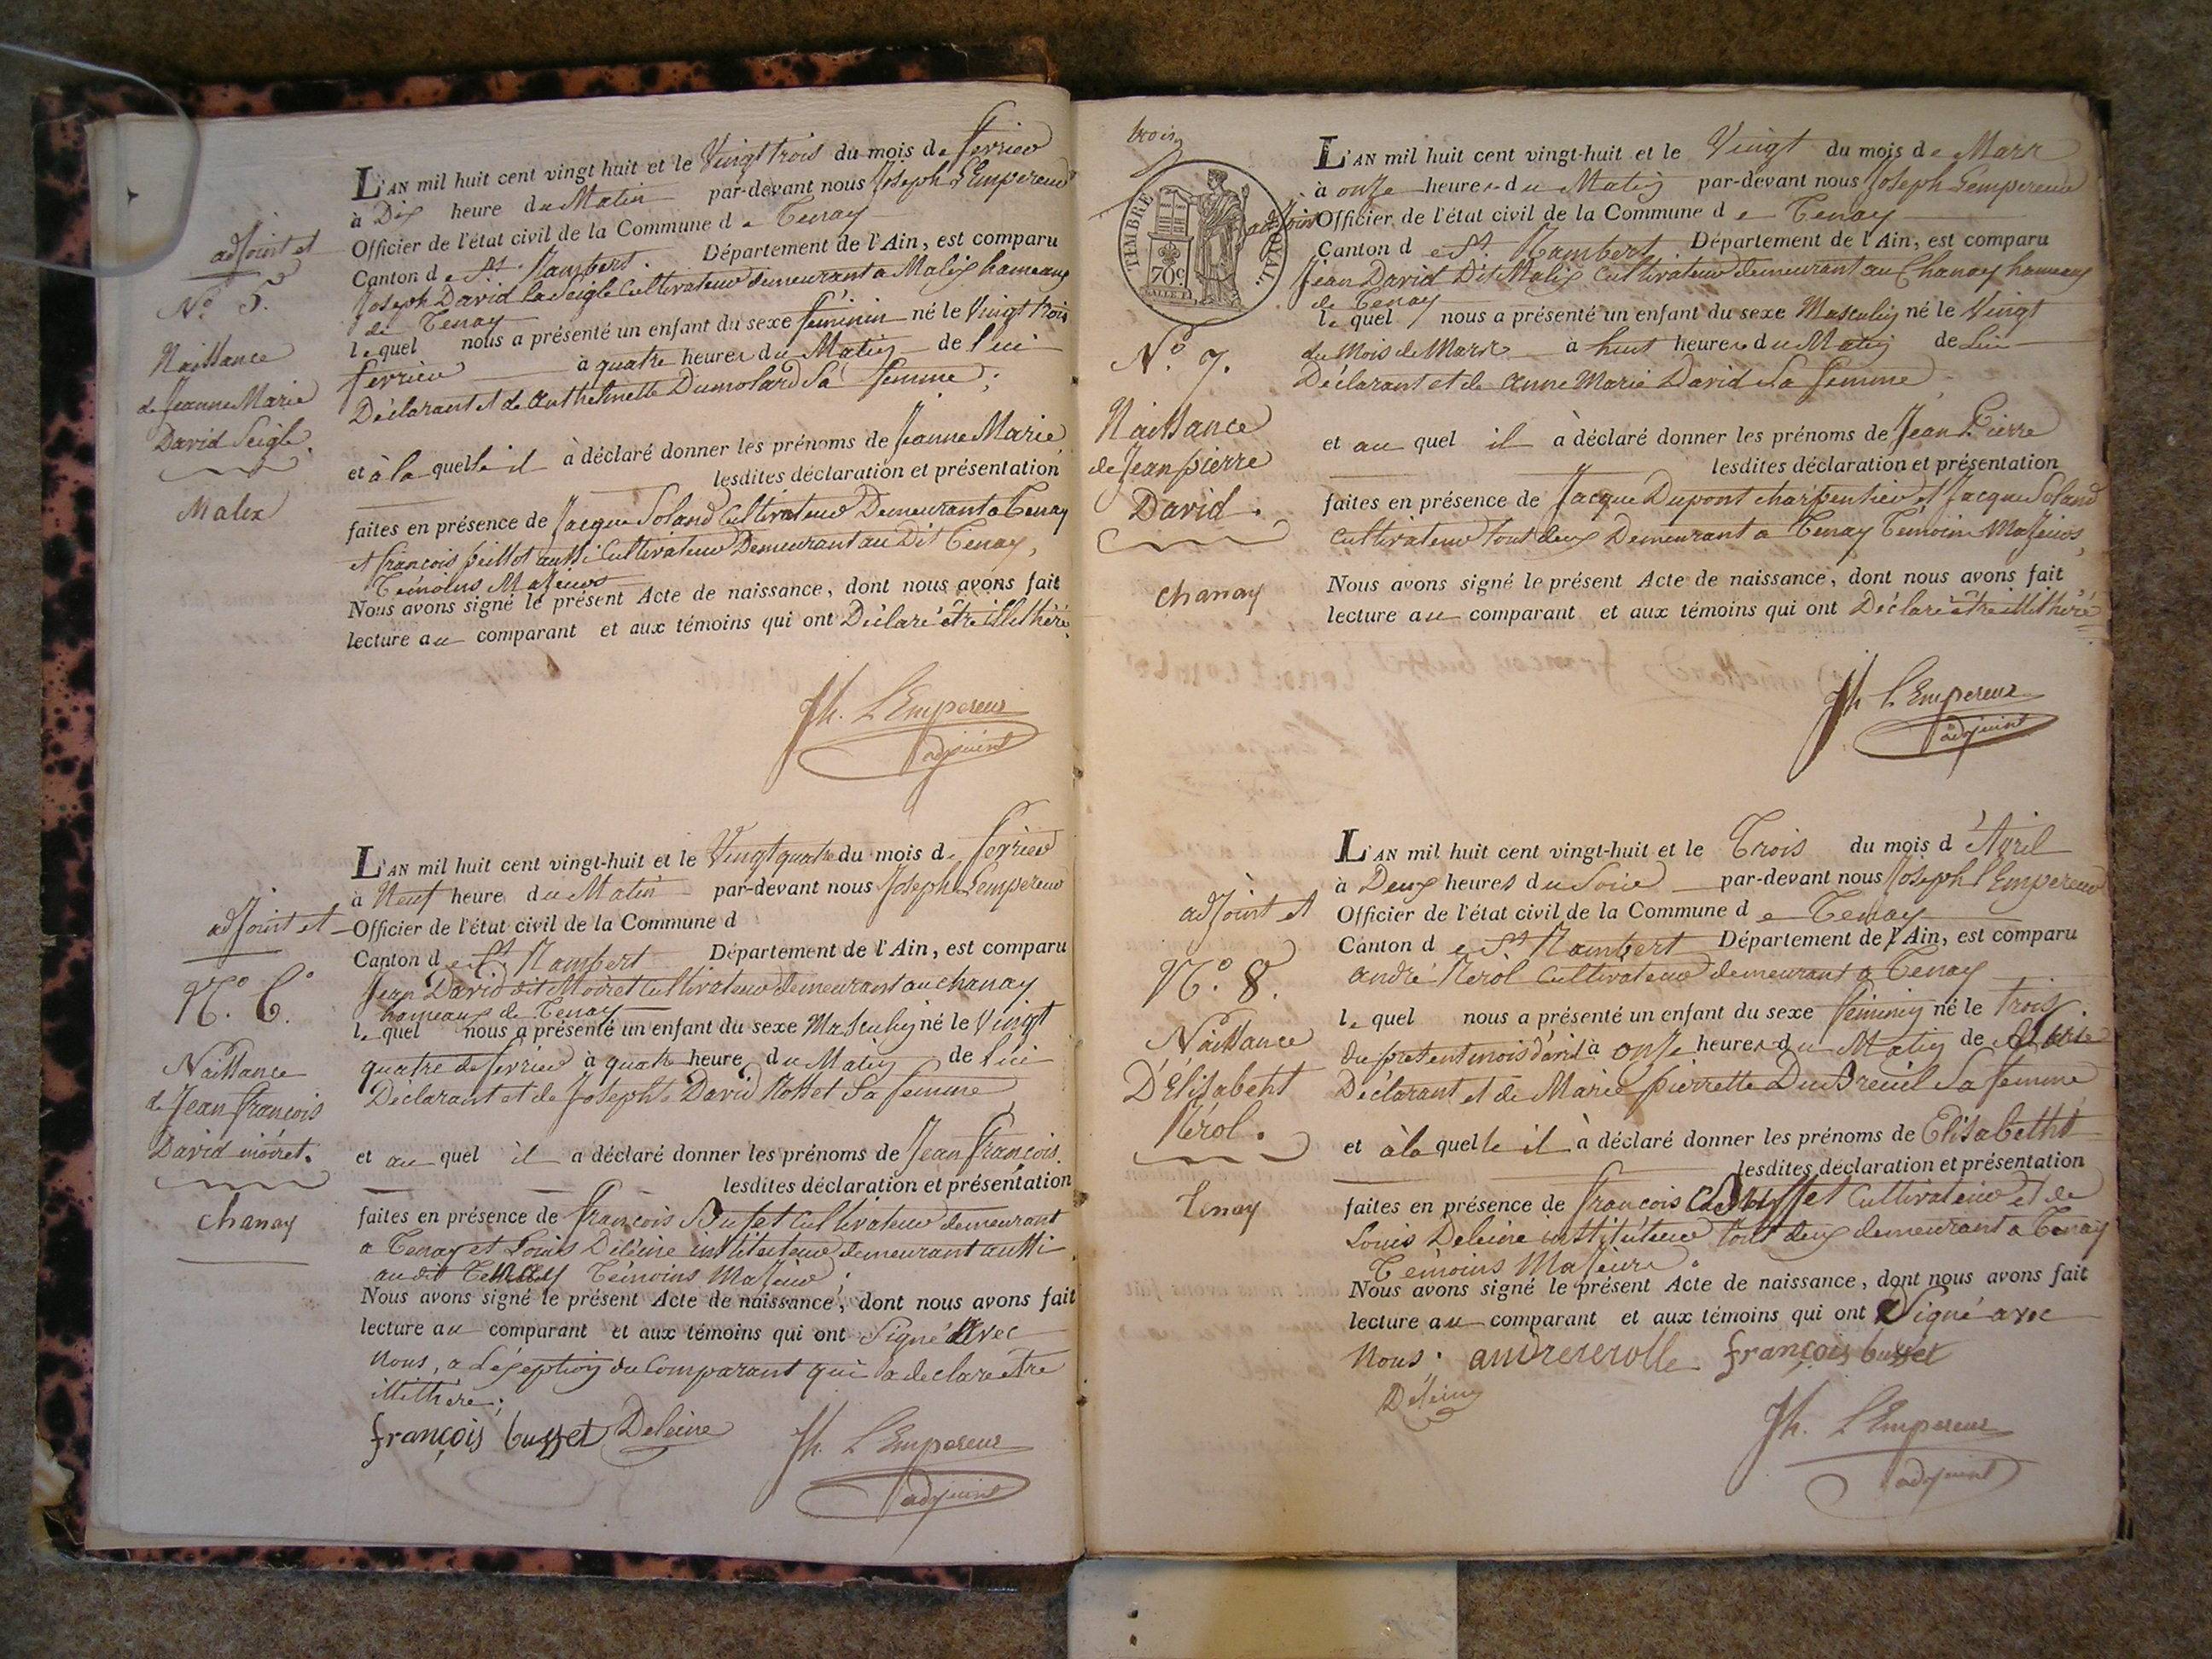 L'AN mil huit cent vingt huit et le Vingt trois du mois de fevrier
à Dix heure du Matin par-devant nous Joseph L'Empereur
adjoint et
Officier de l'état civil de la Commune de Tenay
Canton de St. Rambert. Département de l'Ain, est comparu
Joseph David la Seigle Cultivateur demeurant a Malix hameaux
de Tenay
lequel nous a présenté un enfant du sexe feminin né le Vingt trois
fevrier à quatre heures du Matin de lui
Déclarant et de Anthelmette Dumolard Sa femme ;
et à la quelle il à déclaré donner les prénoms de Jeanne Marie
lesdites déclaration et présentation
faites en présence de Jacque Soland Cultivateur Demeurant a Tenay
et francois peillot aussi Cultivateur Demeurant au Dit Tenay,
Témoins Majeurs
Nous avons signé le présent Acte de naissance, dont nous avons fait
lecture au comparant et aux témoins qui ont Déclaré être illithéré
Jh. L'Empereur
adjoint
No. 5.
Naissance
de Jeanne Marie
David Seigle.
Malix
L'AN mil huit cent vingt-huit et le Vingt quatre du mois de fevrier
à Neuf heure du Matin par-devant nous Joseph Lempereur
adjoint et
Officier de l'état civil de la Commune d
Canton de St. Rambert Département de l'Ain, est comparu
Jean David dit Moiret Cultivateur demeurant au chanay
hameaux de Tenay
lequel nous a présenté un enfant du sexe Masculin né le Vingt
quatre de fevrier à quatre heure du Matin de lui
Déclarant et de Josephte David Rosset Sa femme
et au quel il a déclaré donner les prénoms de Jean François
lesdites déclaration et présentation
faites en présence de François Busset Cultivateur demeurant
a Tenay et Louis Déléine instituteur demeurant aussi
au dit Tenay Témoins Majeur ;
Nous avons signé le présent Acte de naissance, dont nous avons fait
lecture au comparant et aux témoins qui ont Signé Avec
Nous, a Léxeption du Comparant qui a declaré etre
illithéré ;
françois busset Deleine
Jh. L'Empereur
adjoint
No. 6.
Naissance
de Jean François
David moiret.
Chanay
trois
TIMBRE ROYAL.
70c.
L'AN mil huit cent vingt-huit et le Vingt du mois de Mars
à onze heures du Matin par-devant nous Joseph Lempereur
adjoint
Officier de l'état civil de la Commune de Tenay
Canton de St. Rambert Département de l'Ain, est comparu
Jean David Dit Malix Cultivateur demeurant au Chanay hameaux
de Tenay
lequel nous a présenté un enfant du sexe Masculin né le Vingt
du Mois de Mars à huit heures du Matin de Lui
Déclarant et de Anne Marie David Sa femme
et au quel il à déclaré donner les prénoms de Jean Pierre
lesdites déclaration et présentation
faites en présence de Jacque Dupont charpentier et Jacque Soland
Cultivateur tout deux Demeurant a Tenay Témoins Majeurs,
Nous avons signé le présent Acte de naissance, dont nous avons fait
lecture au comparant et aux témoins qui ont Déclaré être illithéré
Jh L'Empereur
adjoint
No. 7.
Naissance
de Jean pierre
David.
Chanay
L'AN mil huit cent vingt-huit et le Trois du mois d'Avril
à Deux heures du Soir par-devant nous Joseph l'Empereur
adjoint et
Officier de l'état civil de la Commune de Tenay
Canton de St. Rambert Département de l'Ain, est comparu
andré Rérol Cultivateur demeurant a Tenay
lequel nous a présenté un enfant du sexe feminin né le trois
du present mois d'avril à onze heures du Matin de
Déclarant et de Marie pierrette Dubreuil Sa femme
et à la quelle il à déclaré donner les prénoms de Elisabetht
lesdites déclaration et présentation
faites en présence de francois Busset Cultivateur et de
Louis Deleine instituteur tout deux demeurant a Tenay
Témoins Majeurs.
Nous avons signé le présent Acte de naissance, dont nous avons fait
lecture au comparant et aux témoins qui ont Signé avec
Nous. andrererolle françois busset
Deleine
Jh. L'Empereur
adjoint
No. 8.
Naissance
D'Elisabeht
Rérol.
Tenay